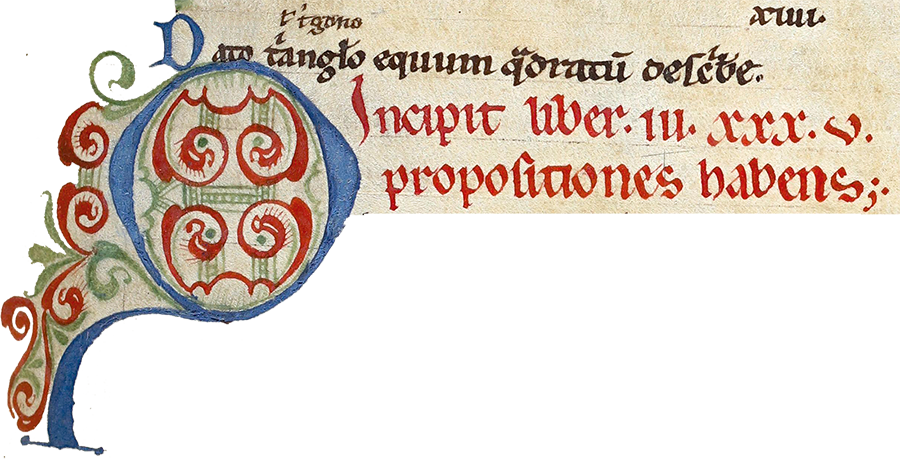 tͥgono xiiii.
Dato tͥangƚo equum qͣdratū deſcͥbe.
Incipit liber. iii. xxx. v.
propoſitiones habens;